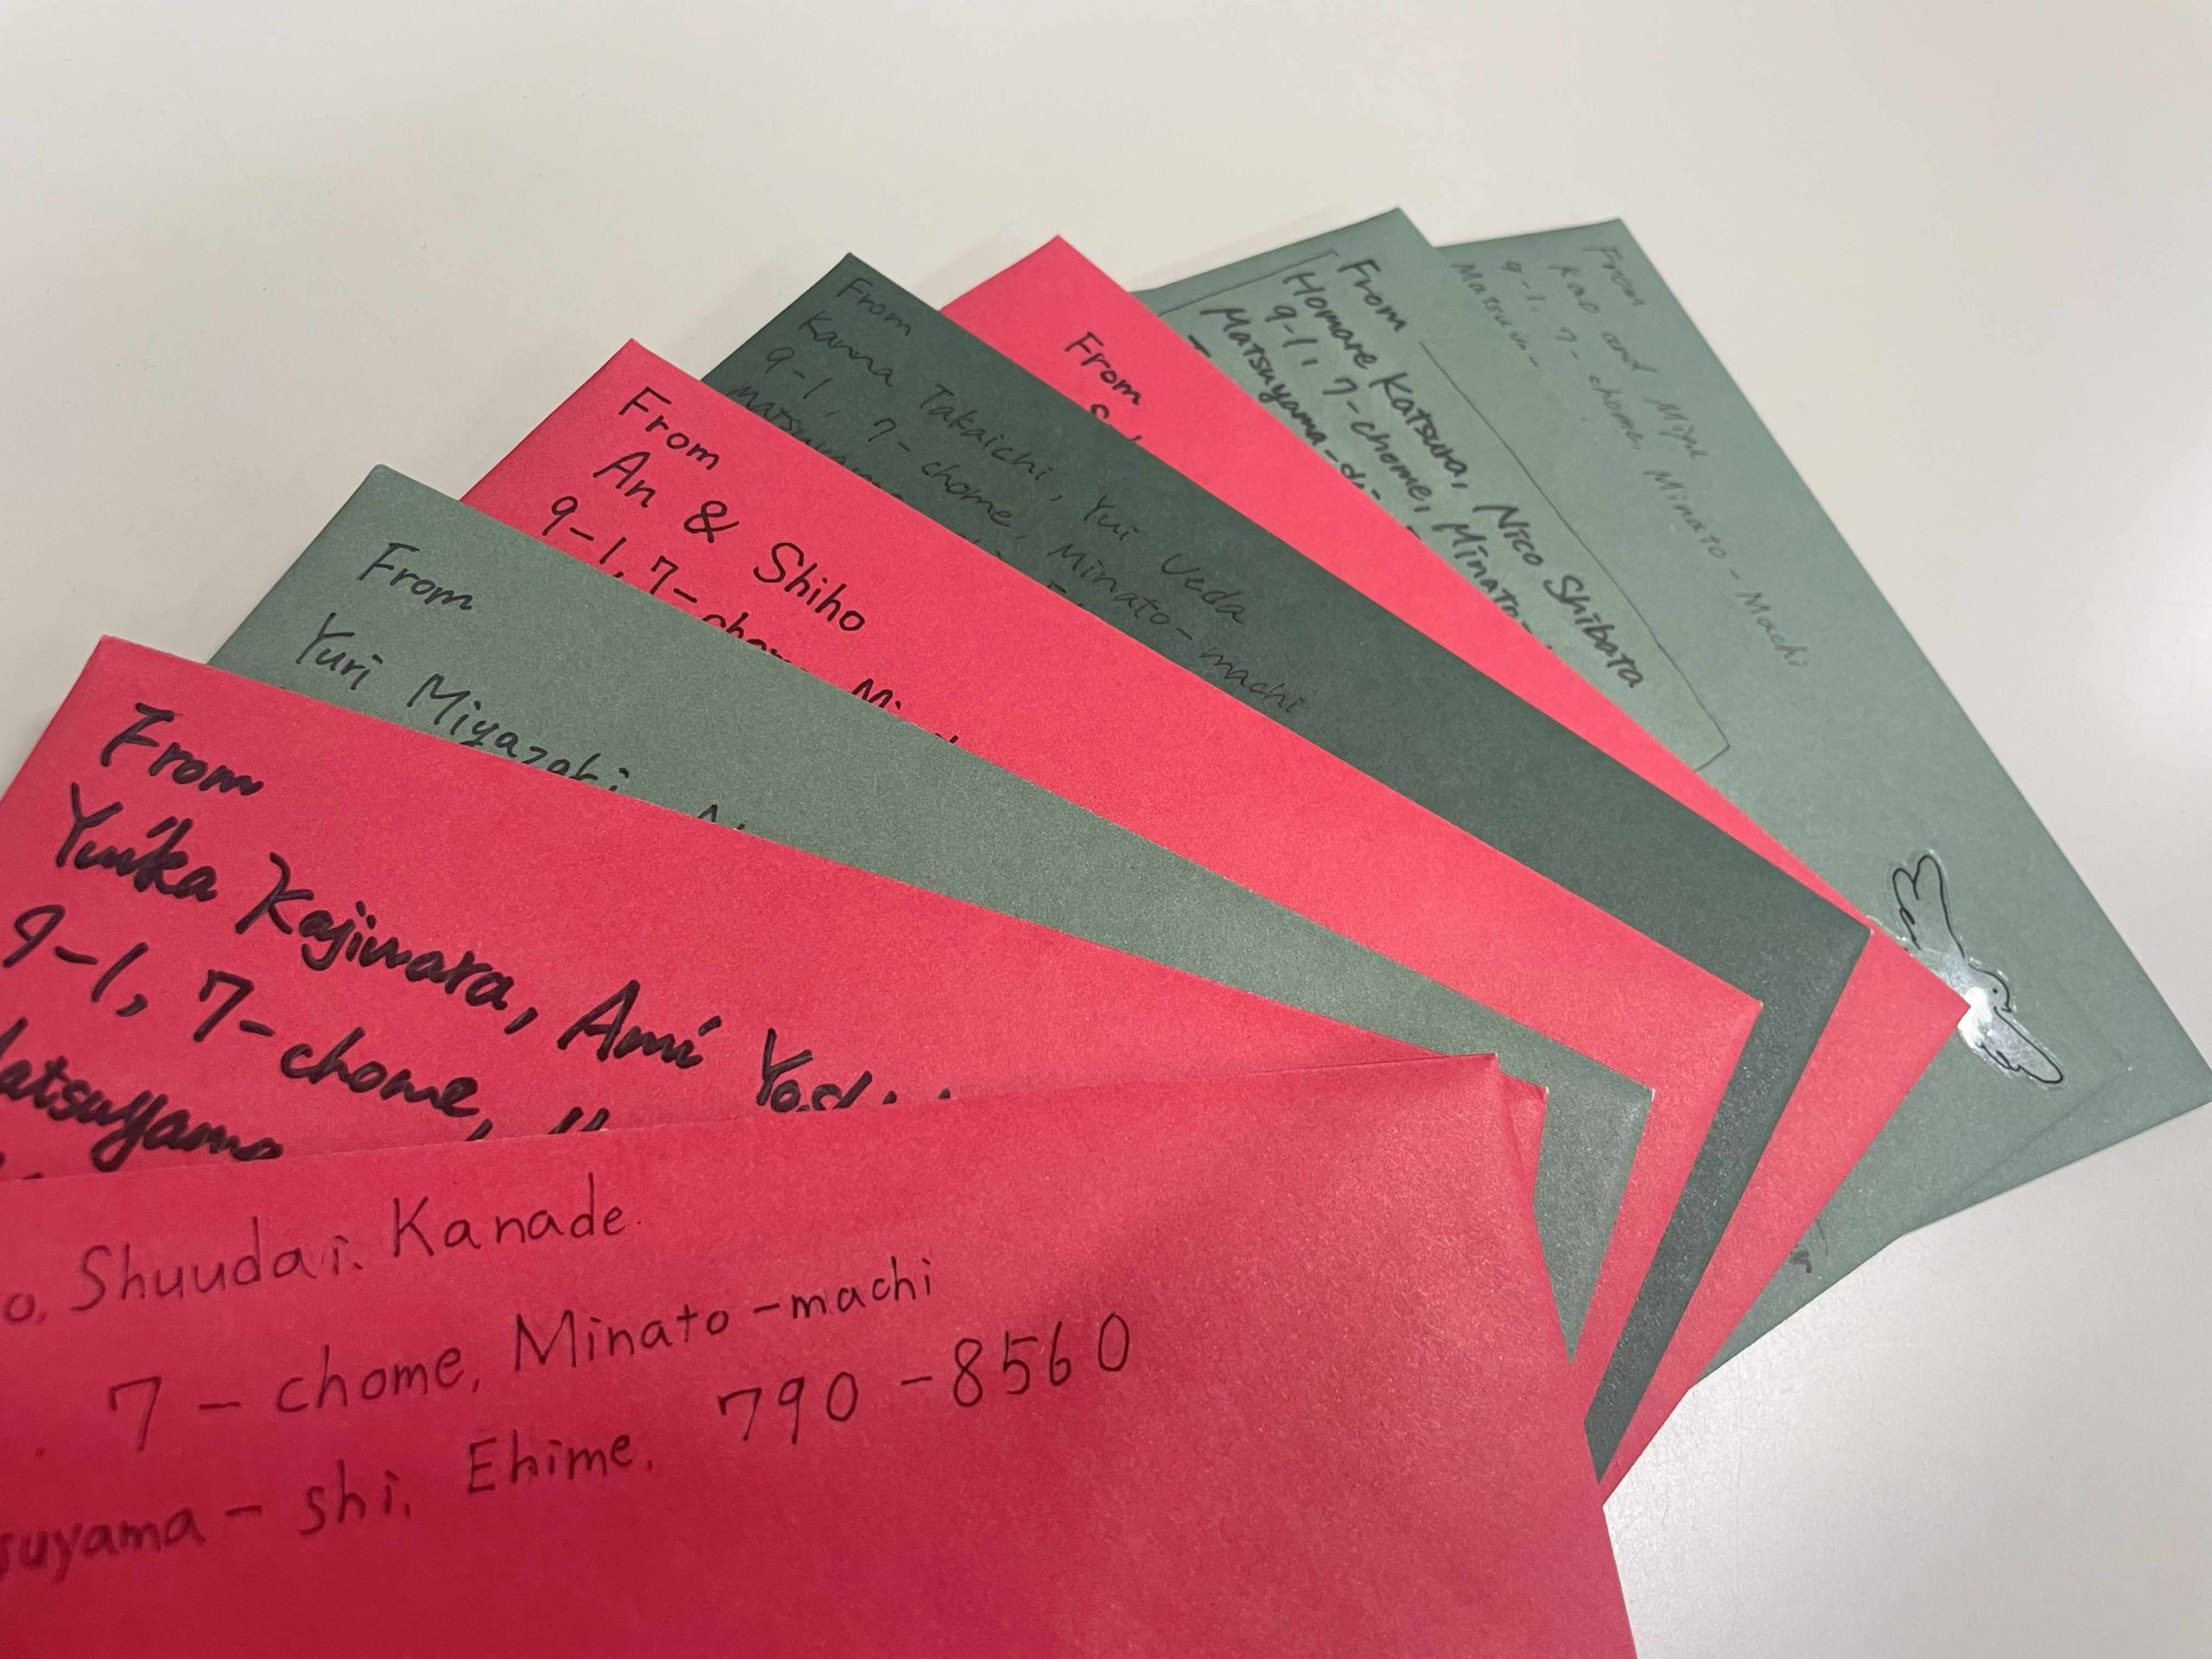 From
Kao and Miyu
9-1, 7-chome, Minato-Machi
From
Homare Katsura, Nico Shibata
9-1, 7-chome, Minato-
From
From
Kanna Takaichi, Yui Ueda
9-1, 7-chome, Minato-machi
From
An & Shiho
9-1, 7-
From
Yuri Miyazaki
From
Yuika Kajiwara, Ami
9-1, 7-chome,
atsuyama
o, Shuudai, Kanade
7-chome, Minato-machi
suyama-shi, Ehime, 790-8560